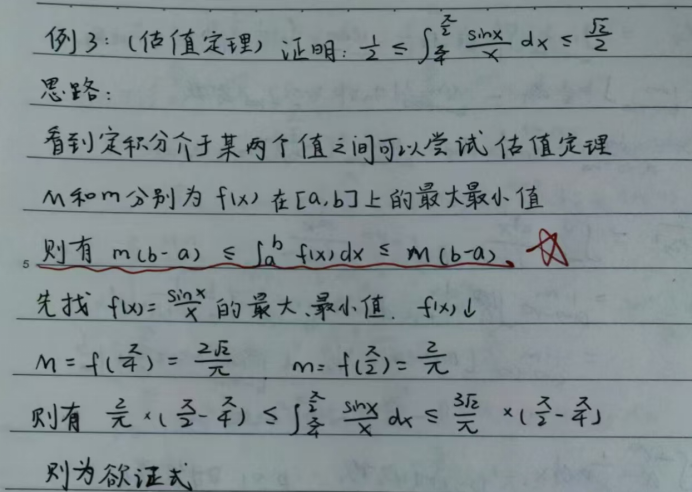 例3：(估值定理) 证明: 1/2 ≤ ∫_{π/4}^{π/2} sinx/x dx ≤ √2/2
思路：
看到定积分介于某两个值之间可以尝试估值定理
M和m分别为f(x)在[a,b]上的最大最小值
则有 m(b-a) ≤ ∫_a^b f(x)dx ≤ M(b-a). ☆
5
先找 f(x)= sinx/x 的最大、最小值. f(x)↓
M = f(π/4) = 2√2/π m = f(π/2) = 2/π
则有 2/π ×(π/2 - π/4) ≤ ∫_{π/4}^{π/2} sinx/x dx ≤ 3√2/π ×(π/2 - π/4)
则为欲证式